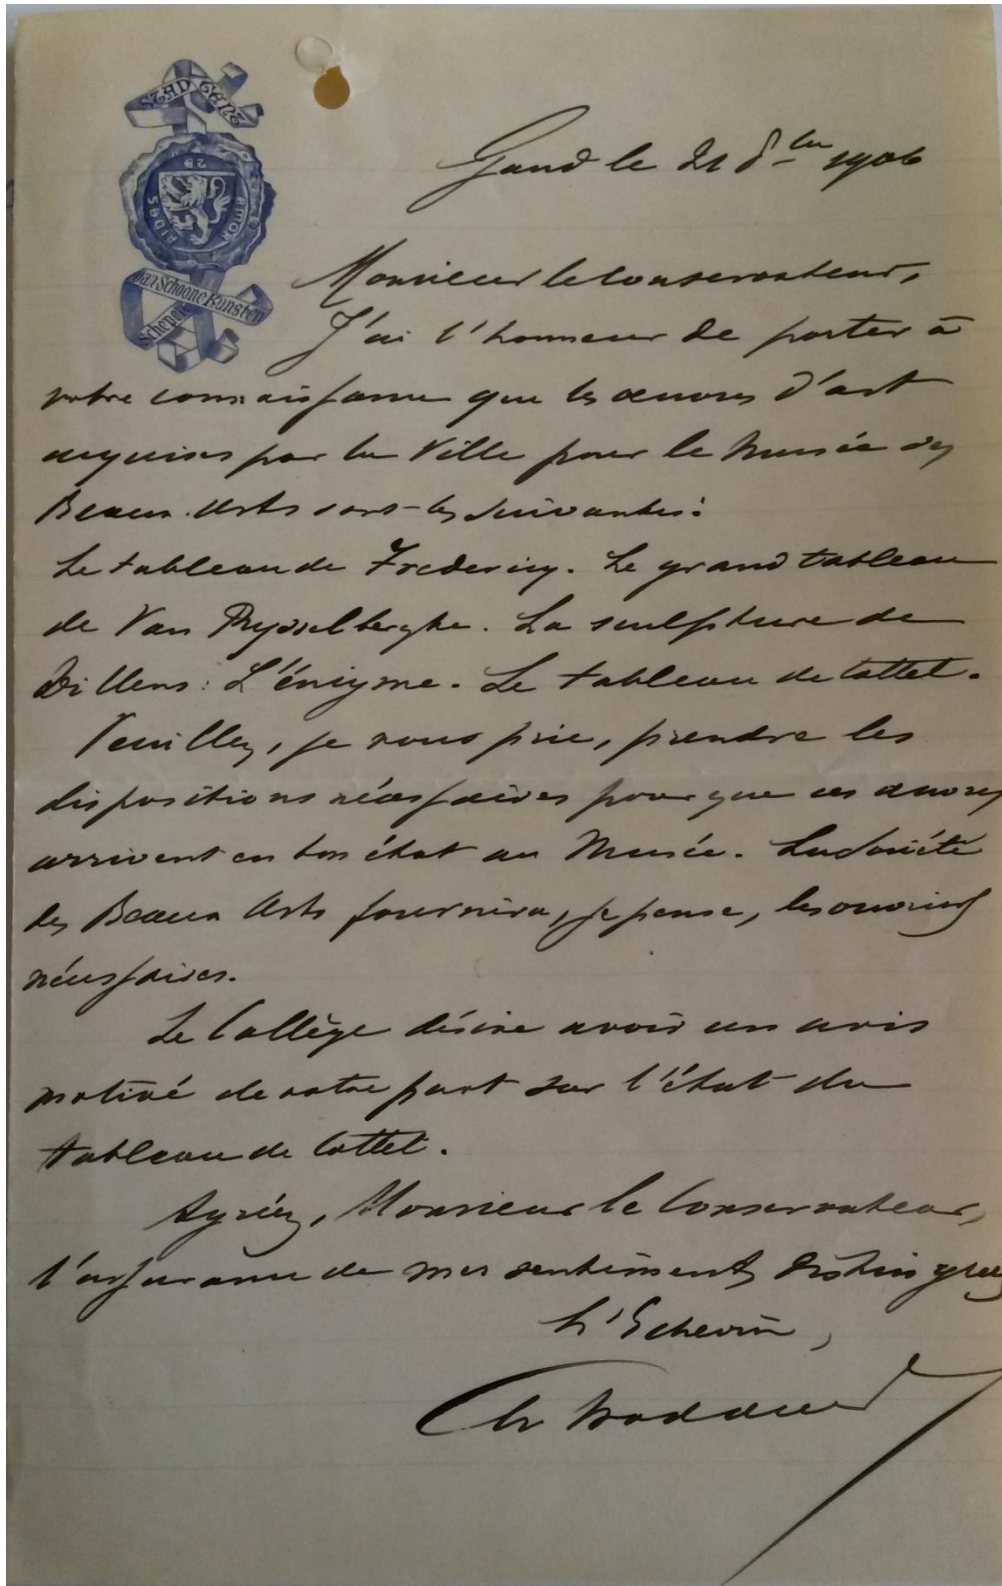 STAD GENT
FIDES ET AMOR
van Schoone Kunsten
Schepen
Gand le 21 8bre 1906
Monsieur le Conservateur,
J'ai l'honneur de porter à
votre connaissance que les œuvres d'art
acquises par la Ville pour le Musée des
Beaux-Arts sont les suivantes:
Le tableau de Fredericq. Le grand tableau
de Van Rysselberghe. La sculpture de
Dillens: L'énigme. Le tableau de Cottet.
Veuillez, je vous prie, prendre les
dispositions nécessaires pour que ces œuvres
arrivent en bon état au Musée. La Société
des Beaux Arts fournira, je pense, les ouvriers
nécessaires.
Le Collège désire avoir un avis
motivé de votre part sur l'état du
tableau de Cottet.
Agréez, Monsieur le Conservateur,
l'assurance de mes sentiments distingués
L'Echevin,